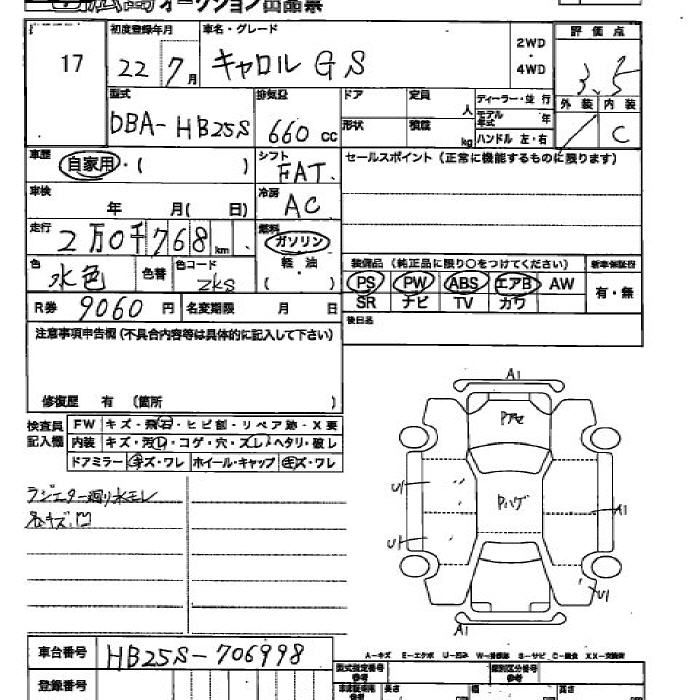 広島オークション出品票
17
初度登録年月 22年7月
車名・グレード キャロル GS
2WD
・
4WD
評価点 3.5
外装 内装 C
型式 DBA-HB25S
排気量 660 cc
ドア 定員 人
形状 積載 kg
ディーラー・並行
モデル年式 年
ハンドル 左・右
車歴 自家用・( )
シフト FAT
セールスポイント(正常に機能するものに限ります)
車検 年 月( 日)
冷房 AC
走行 2万0千768km
燃料 ガソリン
軽・油
( )
色 水色 色替 色コード ZKS
装備品(純正品に限り○をつけてください)
新車保証書
PS PW ABS エアB AW
有・無
SR ナビ TV カワ
R券 9060円 名変期限 月 日
後日品
注意事項申告欄(不具合内容等は具体的に記入して下さい)
修復歴 有 (箇所 )
検査員記入欄
FW キズ・飛石・ヒビ割・リペア跡・X要
内装 キズ・汚レ・コゲ・穴・スレ・ヘタリ・破レ
ドアミラー キズ・ワレ ホイール・キャップ キズ・ワレ
ラジエター廻り水モレ
名キズ.凹
A1
Pアセ
U1
Pハゲ
A1
U1
U1
A1
A-キズ E-エクボ U-凹み W-補修跡 S-サビ C-腐食 XX-交換済
車台番号 HB25S-706998
登録番号
型式指定番号 参考
類別区分番号 参考
長さ 幅 高さ